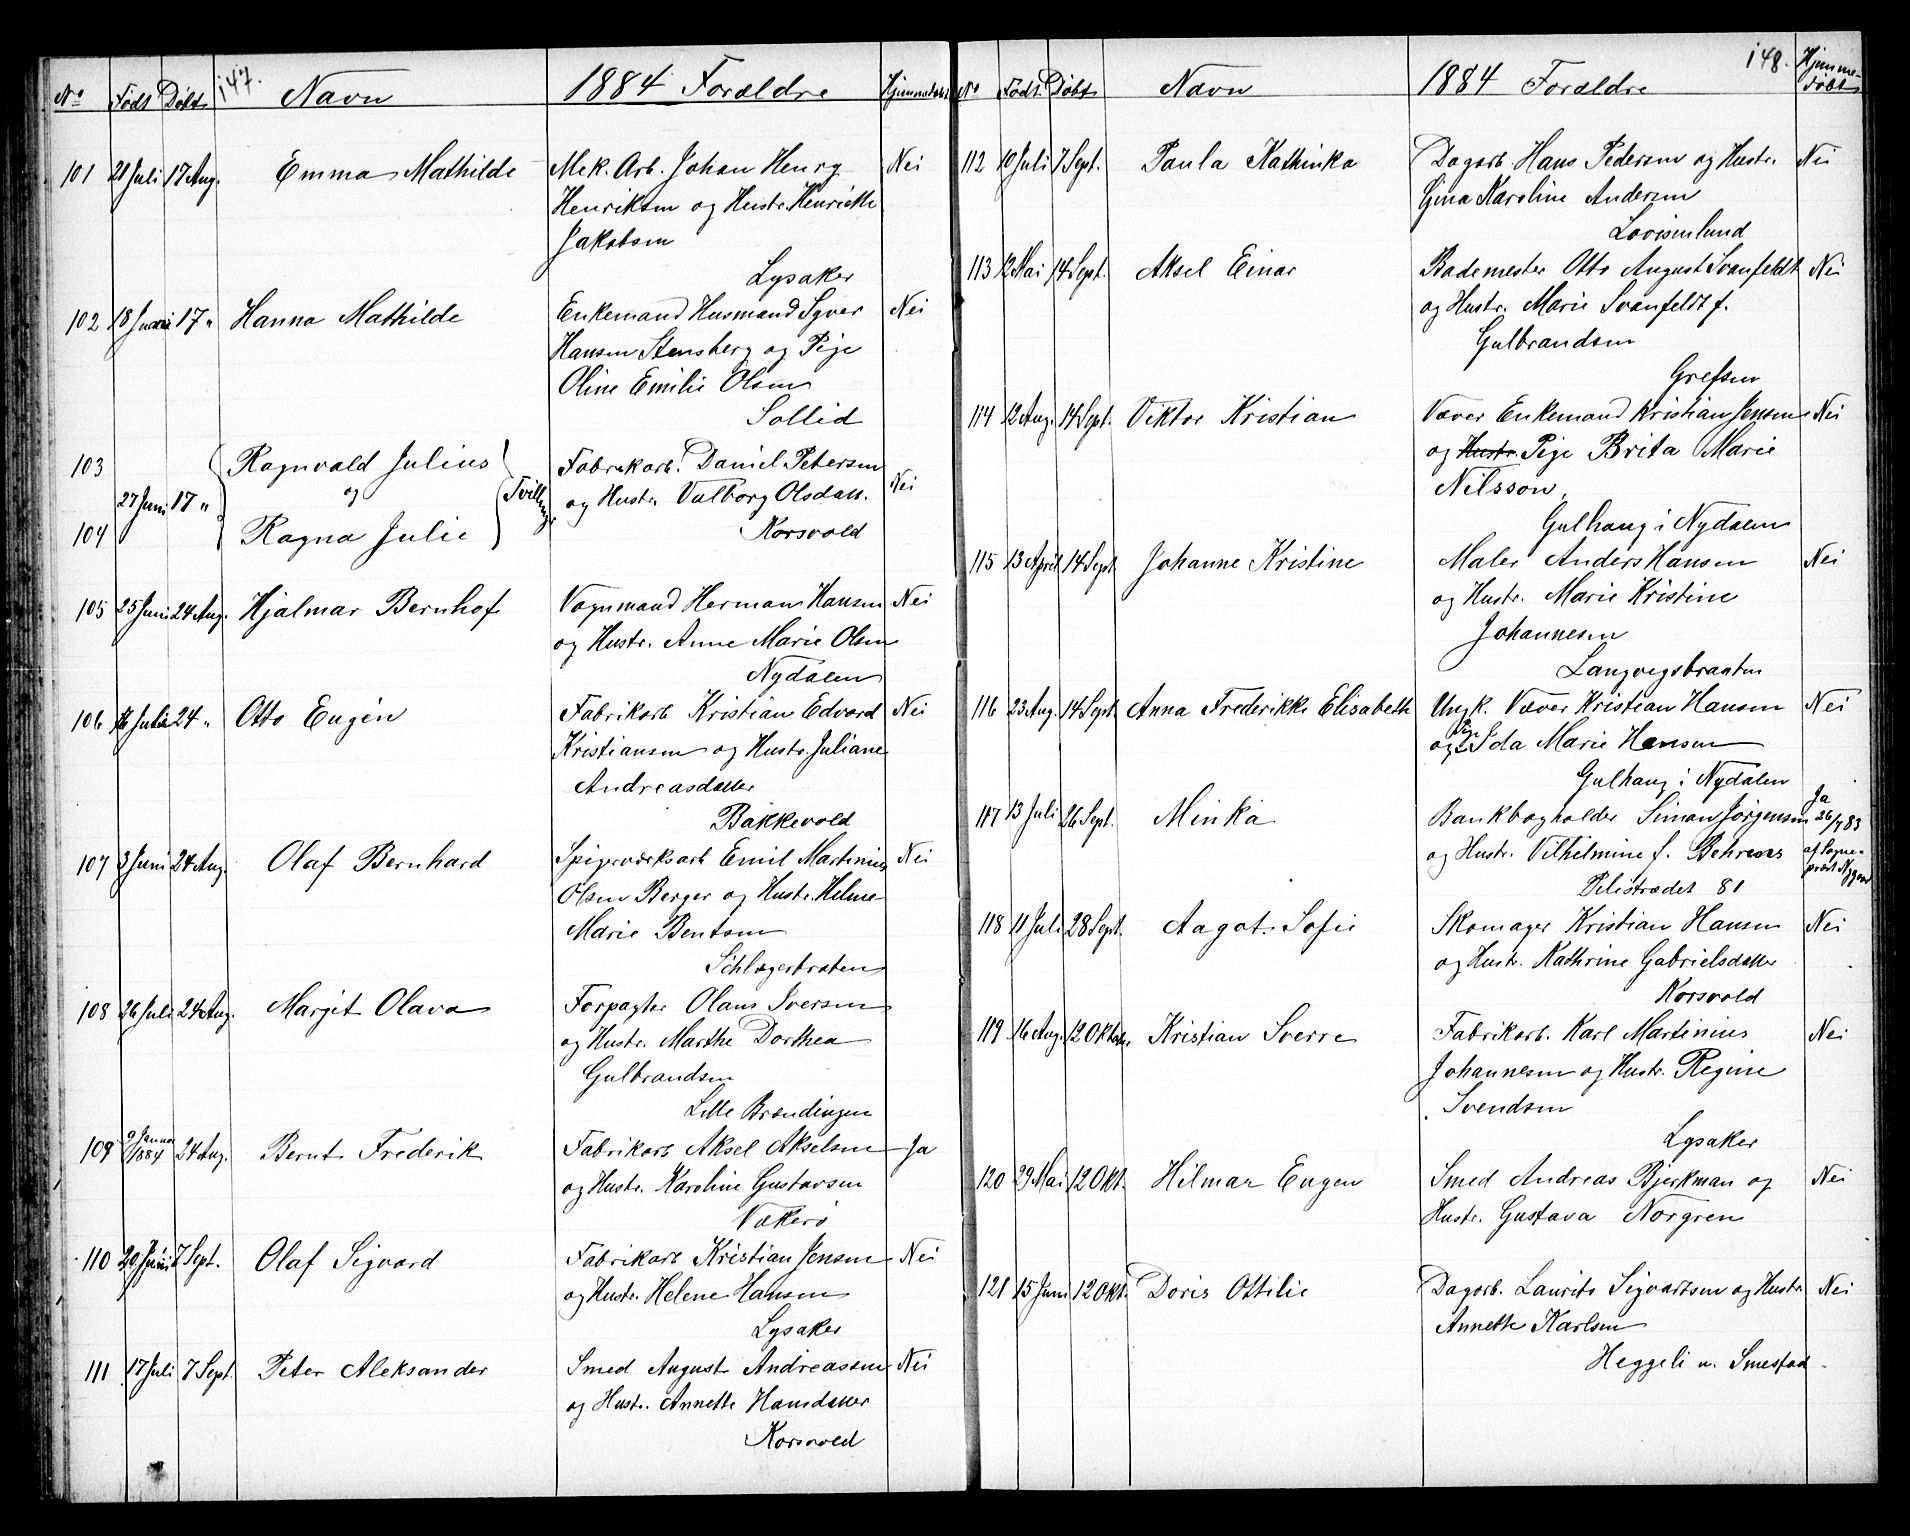 147.
No Født Døbt Navn 1884 Forældre Hjemmedøbt
101 21 Juli 17 Aug. Emma Mathilde Mek. Arb. Johan Henry Nei
Henriksen og Hustr. Henriette
Jakobsen
Lysaker
102 18 Juni 17 " Hanna Mathilde Enkemand Husmand Syver Nei
Hansen Stensberg og Pige
Oline Emilie Olsen
Sollid
103 Ragnvald Julius Fabrikarb. Daniel Petersen
27 Juni 17 " og Tvillinger og Hustr. Valborg Olsdatt. Nei
104 Ragna Julie Korsvold
105 25 Juni 24 Aug. Hjalmar Bernhof Vognmand Herman Hansen Nei
og Hustr. Anne Marie Olsen
Nydalen
106 Juli 24 " Otto Eugén Fabrikarb Kristian Edvard Nei
Kristiansen og Hustr. Juliane
Andreasdatter
Bakkevold
107 3 Juni 24 Aug. Olaf Bernhard Spigerværksarb Emil Martinius Nei
Olsen Berger og Hustr. Helene
Marie Bentsen
Schlægerbraten
108 26 Juli 24 Aug. Margit Olava Forpagter Olaus Iversen
og Hustr. Marthe Dorthea
Gulbrandsen
Lille Brændingen
109 9 Januar 1884 24 Aug. Bernt Frederik Fabrikarb Aksel Akselsen Ja
og Hustr. Karoline Gustavsen
Vækerö
110 20 Juni 7 Sept. Olaf Sigvard Fabrikarb Kristian Jensen Nei
og Hustr. Helene Hansen
Lysaker
111 17 Juli 7 Sept. Peter Aleksander Smed August Andreassen Nei
og Hustr. Annette Hansdatter
Korsvold
148.
No Født Døbt Navn 1884 Forældre Hjemme-
døbt
112 10 Juli 7 Sept. Paula Kathinka Dagarb. Hans Pedersen og Hustr. Nei
Gina Karoline Andersen
Lovisenlund
113 12 Mai 14 Sept. Aksel Einar Bademester Otto August Svanfeldt Nei
og Hustr. Marie Svanfeldt f.
Gulbrandsen
Grefsen
114 12 Aug. 14 Sept. Viktor Kristian Væver Enkemand Kristian Jensen Nei
og Hustr. Pige Brita Marie
Nilsson,
Gulhaug i Nydalen
115 13 April 14 Sept Johanne Kristine Maler Anders Hansen Nei
og Hustr. Marie Kristine
Johannesen
Langvegsbraaten
116 23 Aug. 14 Sept. Anna Frederikke Elisabeth Ungk. Væver Kristian Hansen Nei
og Pige Ida Marie Hansen
Gulhaug i Nydalen
117 13 Juli 26 Sept. Minka Bankbogholder Simon Jørgensen Ja 26/7 83
og Hustr. Vilhelmine f. Behrens af Sogne-
Pilestrædet 81 præst
118 11 Juli 28 Sept. Aagot Sofie Skomager Kristian Hansen Nei
og Hustr. Kathrine Gabrielsdatter
Korsvold
119 16 Aug. 12 Oktober Kristian Sverre Fabrikarb. Karl Martinius Nei
Johannesen og Hustr. Regine
Svendsen
Lysaker
120 29 Mai 12 Okt. Hilmar Eugen Smed Andreas Bjerkman og Nei
Hustr. Gustava Norgren
121 15 Juni 12 Okt. Doris Ottilie Dagarb. Laurits Sigvartsen og Hustr. Nei
Annette Karlsen
Heggeli u. Smestad